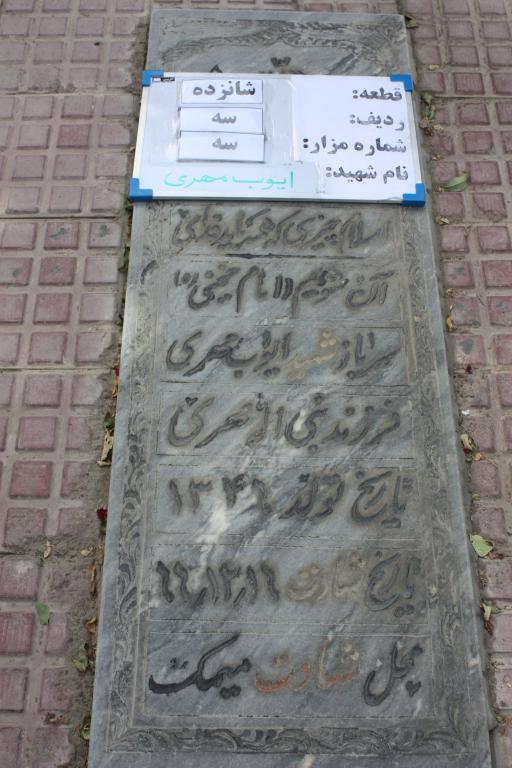 قطعه: شانزده
ردیف: سه
شماره مزار: سه
نام شهید: ایوب مهری
اسلام چیزی که همه باید فدای
آن شویم (امام خمینی)
سرباز شهید ایوب مهری
فرزند نبی اله مهری
تاریخ تولد ۱۳۴۶
تاریخ شهادت ۶۶٫۱۲٫۱۶
محل شهادت میمک